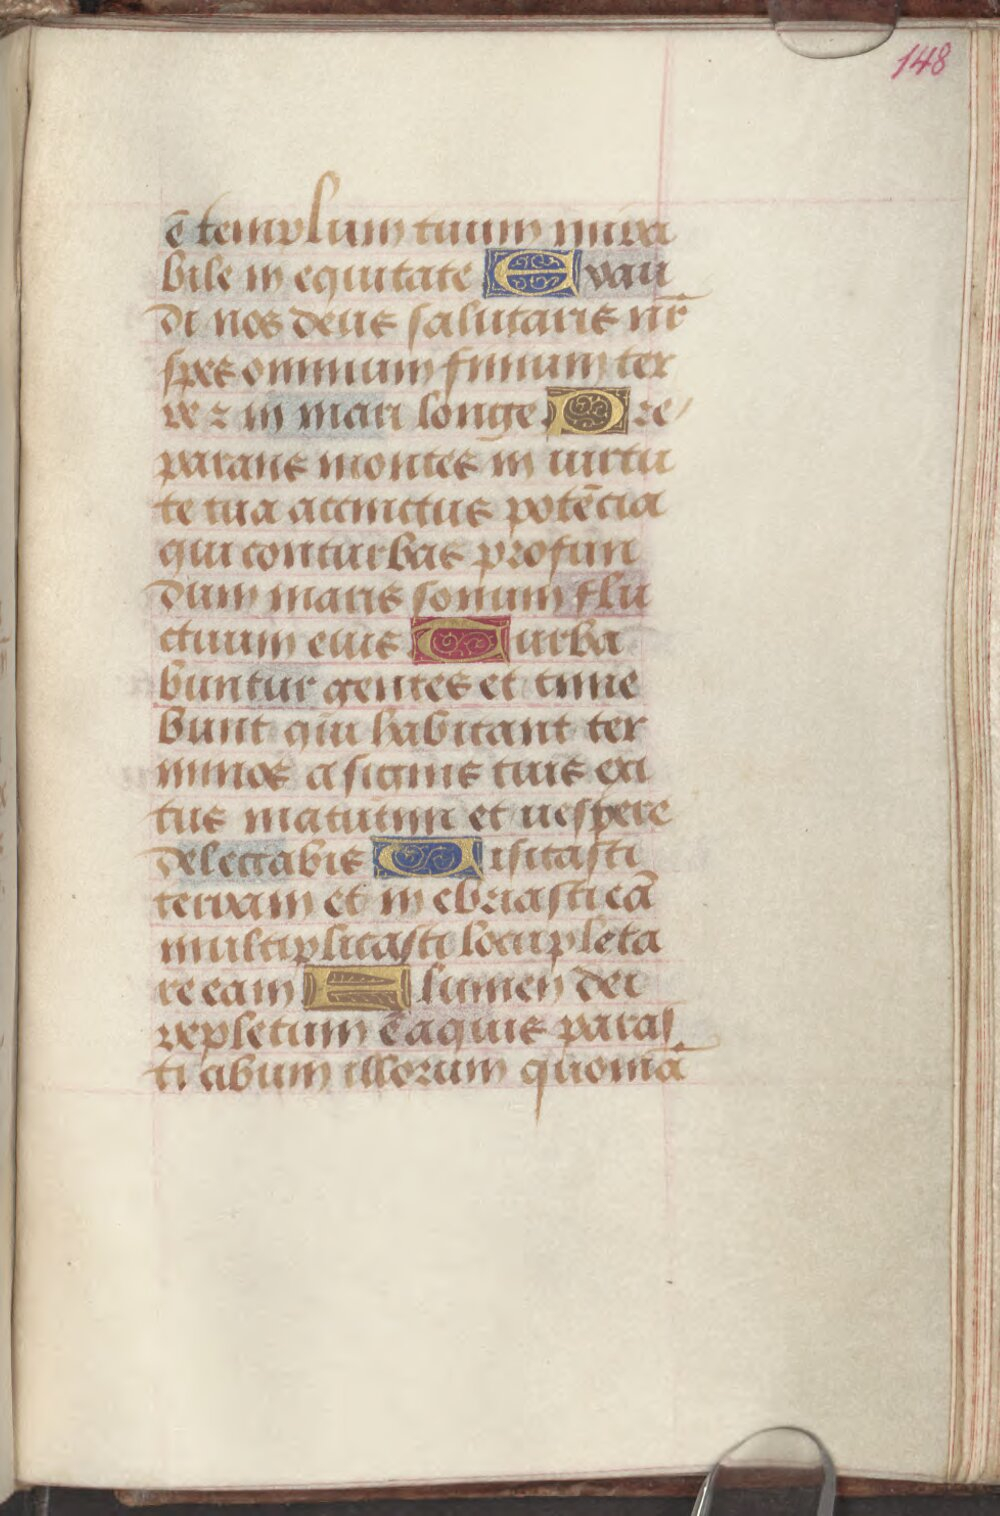 148
ē templum tuum mira
bile in equitate Exau
di nos deus salutaris nr̄
spes omnium finium ter
re ⁊ in mari longe Pre
parans montes in uirtu
te tua accinctus potēcia
qui conturbas profun
dum maris sonum flu
ctuum eius Turba
buntur gentes et time
bunt qui habitant ter
minos a signis tuis exi
tus matutini et uespere
delectabis Uisitasti
terram et in ebriasti eā
multiplicasti locupleta
re eam Flumen dei
repletum ē aquis paras
ti cibum illorum quoniā